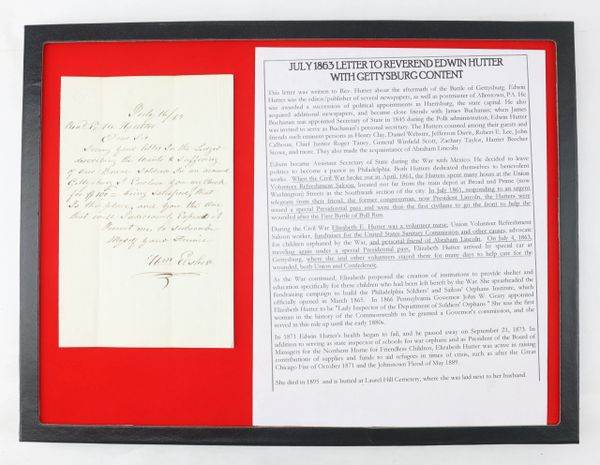 July 16/63
Dear Sir
JULY 1863 LETTER TO REVEREND EDWIN HUTTER
WITH GETTYSBURG CONTENT
This letter was written to Rev. Hutter about the aftermath of the Battle of Gettysburg. Edwin
Hutter was the editor/publisher of several newspapers, as well as postmaster of Allentown, PA. He
was awarded a succession of political appointments in Harrisburg, the state capital. He also
acquired additional newspapers, and became close friends with James Buchanan; when James
Buchanan was appointed Secretary of State in 1845 during the Polk administration, Edwin Hutter
was invited to serve as Buchanan's personal secretary. The Hutters counted among their guests and
friends such eminent persons as Henry Clay, Daniel Webster, Jefferson Davis, Robert E. Lee, John
Calhoun, Chief Justice Roger Taney, General Winfield Scott, Zachary Taylor, Harriet Beecher
Stowe, and more. They also made the acquaintance of Abraham Lincoln.
Edwin became Assistant Secretary of State during the War with Mexico. He decided to leave
politics to become a pastor in Philadelphia. Both Hutters dedicated themselves to benevolent
works. When the Civil War broke out in April, 1861, the Hutters spent many hours at the Union
Volunteer Refreshment Saloon, located not far from the main depot at Broad and Prime (now
Washington) Streets in the Southwark section of the city. In July 1861, responding to an urgent
telegram from their friend, the former congressman, now President Lincoln, the Hutters were
issued a special Presidential pass and were thus the first civilians to go the front to help the
wounded after the First Battle of Bull Run.
During the Civil War Elizabeth E. Hutter was a volunteer nurse, Union Volunteer Refreshment
Saloon worker, fundraiser for the United States Sanitary Commission and other causes, advocate
for children orphaned by the War, and personal friend of Abraham Lincoln. On July 4, 1863,
traveling again under a special Presidential pass, Elizabeth Hutter arrived by special car at
Gettysburg, where she and other volunteers stayed there for many days to help care for the
wounded, both Union and Confederate.
As the War continued, Elizabeth proposed the creation of institutions to provide shelter and
education specifically for these children who had been left bereft by the War. She spearheaded the
fundraising campaign to build the Philadelphia Soldiers' and Sailors' Orphans Institute, which
officially opened in March 1865. In 1866 Pennsylvania Governor John W. Geary appointed
Elizabeth Hutter to be "Lady Inspector of the Department of Soldiers' Orphans." She was the first
woman in the history of the Commonwealth to be granted a Governor's commission, and she
served in this role up until the early 1880s.
In 1871 Edwin Hutter's health began to fail, and he passed away on September 21, 1873. In
addition to serving as state inspector of schools for war orphans and as President of the Board of
Managers for the Northern Home for Friendless Children, Elizabeth Hutter was active in raising
contributions of supplies and funds to aid refugees in times of crisis, such as after the Great
Chicago Fire of October 1871 and the Johnstown Flood of May 1889.
She died in 1895 and is buried at Laurel Hill Cemetery, where she was laid next to her husband.